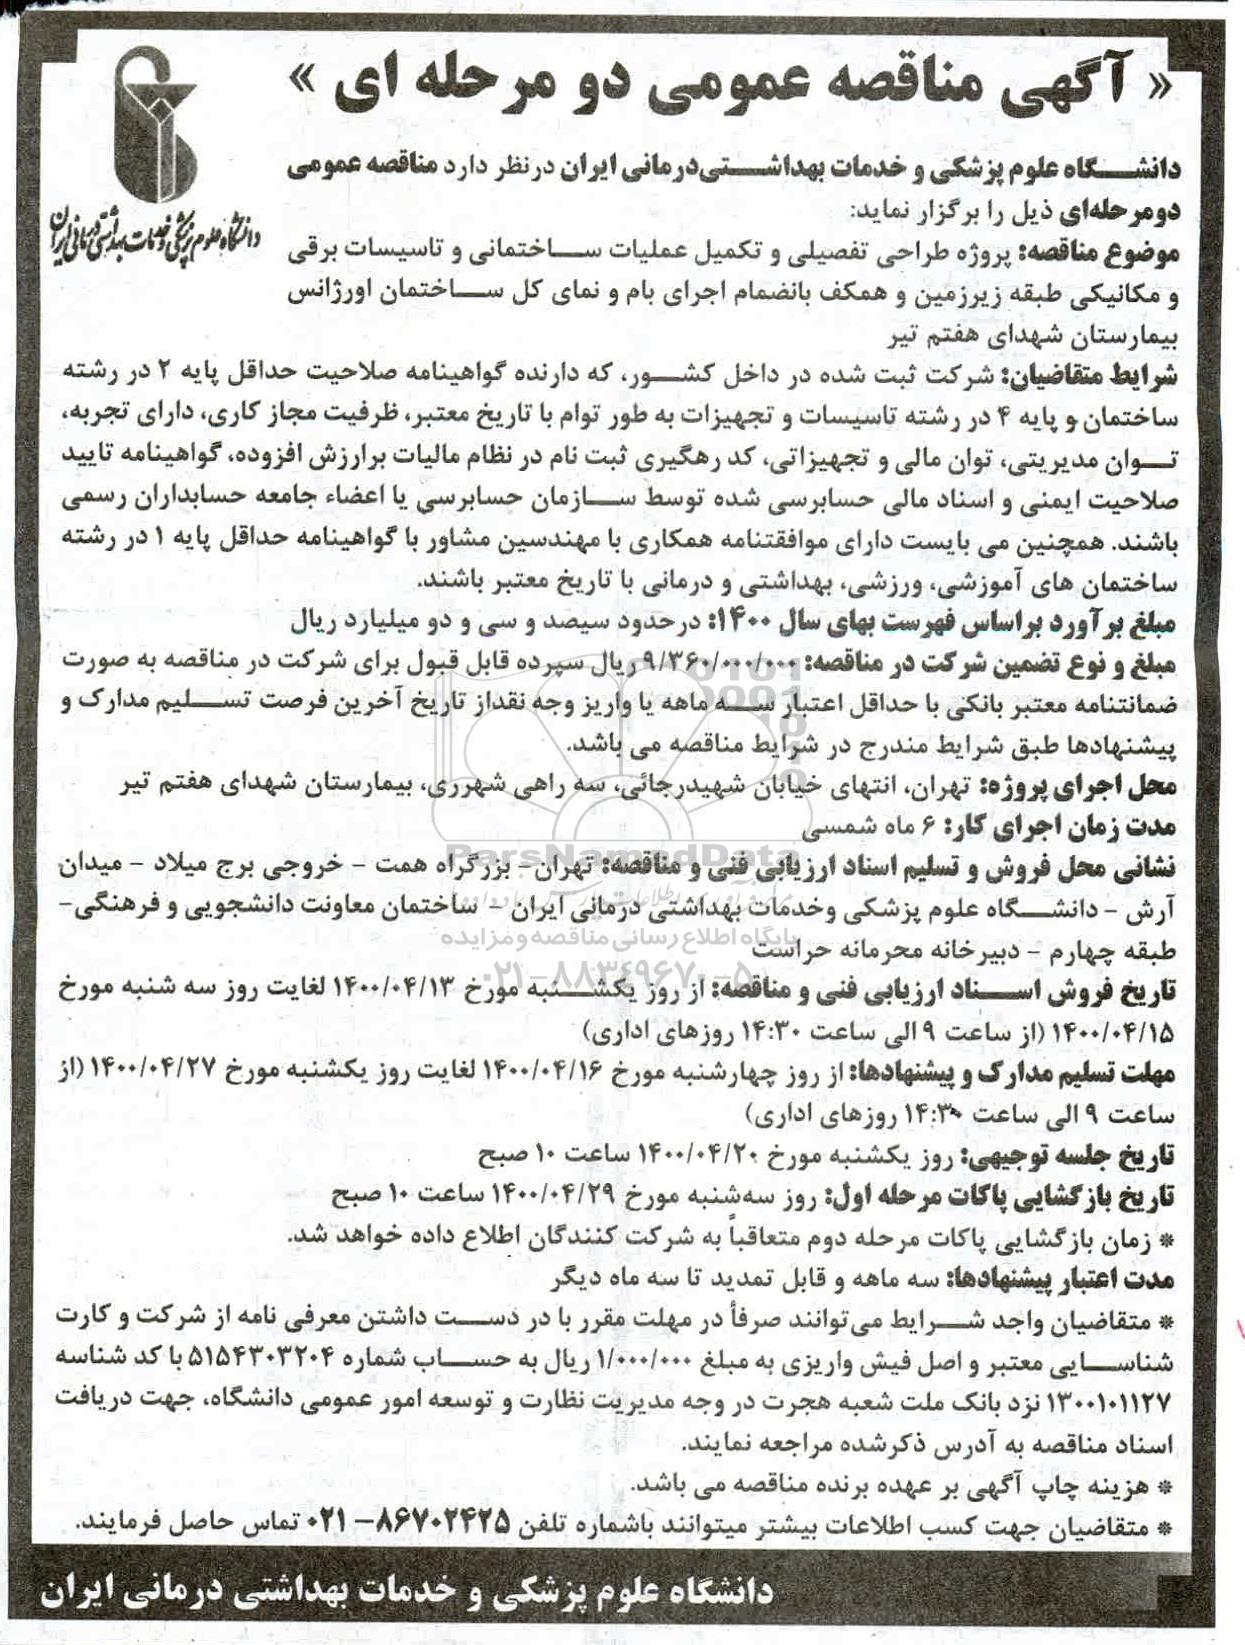 « آگهی مناقصه عمومی دو مرحله ای »
دانشگاه علوم پزشکی و خدمات بهداشتی درمانی ایران
دانشگاه علوم پزشکی و خدمات بهداشتی‌درمانی ایران درنظر دارد مناقصه عمومی
دومرحله‌ای ذیل را برگزار نماید:
موضوع مناقصه: پروژه طراحی تفصیلی و تکمیل عملیات ساختمانی و تاسیسات برقی
و مکانیکی طبقه زیرزمین و همکف بانضمام اجرای بام و نمای کل ساختمان اورژانس
بیمارستان شهدای هفتم تیر
شرایط متقاضیان: شرکت ثبت شده در داخل کشور، که دارنده گواهینامه صلاحیت حداقل پایه ۲ در رشته
ساختمان و پایه ۴ در رشته تاسیسات و تجهیزات به طور توام با تاریخ معتبر، ظرفیت مجاز کاری، دارای تجربه،
توان مدیریتی، توان مالی و تجهیزاتی، کد رهگیری ثبت نام در نظام مالیات برارزش افزوده، گواهینامه تایید
صلاحیت ایمنی و اسناد مالی حسابرسی شده توسط سازمان حسابرسی یا اعضاء جامعه حسابداران رسمی
باشند. همچنین می بایست دارای موافقتنامه همکاری با مهندسین مشاور با گواهینامه حداقل پایه ۱ در رشته
ساختمان های آموزشی، ورزشی، بهداشتی و درمانی با تاریخ معتبر باشند.
مبلغ برآورد براساس فهرست بهای سال ۱۴۰۰: درحدود سیصد و سی و دو میلیارد ریال
مبلغ و نوع تضمین شرکت در مناقصه: ۹/۳۶۰/۰۰۰/۰۰۰ ریال سپرده قابل قبول برای شرکت در مناقصه به صورت
ضمانتنامه معتبر بانکی با حداقل اعتبار سه ماهه یا واریز وجه نقداز تاریخ آخرین فرصت تسلیم مدارک و
پیشنهادها طبق شرایط مندرج در شرایط مناقصه می باشد.
محل اجرای پروژه: تهران، انتهای خیابان شهیدرجائی، سه راهی شهرری، بیمارستان شهدای هفتم تیر
مدت زمان اجرای کار: ۶ ماه شمسی
ParsNamadData
نشانی محل فروش و تسلیم اسناد ارزیابی فنی و مناقصه: تهران- بزرگراه همت - خروجی برج میلاد - میدان
آرش - دانشگاه علوم پزشکی وخدمات بهداشتی درمانی ایران - ساختمان معاونت دانشجویی و فرهنگی-
پایگاه اطلاع رسانی مناقصه و مزایده
طبقه چهارم - دبیرخانه محرمانه حراست
۰۲۱-۸۸۳۴۹۶۷۰-۵
تاریخ فروش اسناد ارزیابی فنی و مناقصه: از روز یکشنبه مورخ ۱۴۰۰/۰۴/۱۳ لغایت روز سه شنبه مورخ
۱۴۰۰/۰۴/۱۵ (از ساعت ۹ الی ساعت ۱۴:۳۰ روزهای اداری)
مهلت تسلیم مدارک و پیشنهادها: از روز چهارشنبه مورخ ۱۴۰۰/۰۴/۱۶ لغایت روز یکشنبه مورخ ۱۴۰۰/۰۴/۲۷ (از
ساعت ۹ الی ساعت ۱۴:۳۰ روزهای اداری)
تاریخ جلسه توجیهی: روز یکشنبه مورخ ۱۴۰۰/۰۴/۲۰ ساعت ۱۰ صبح
تاریخ بازگشایی پاکات مرحله اول: روز سه‌شنبه مورخ ۱۴۰۰/۰۴/۲۹ ساعت ۱۰ صبح
* زمان بازگشایی پاکات مرحله دوم متعاقباً به شرکت کنندگان اطلاع داده خواهد شد.
مدت اعتبار پیشنهادها: سه ماهه و قابل تمدید تا سه ماه دیگر
* متقاضیان واجد شرایط می‌توانند صرفاً در مهلت مقرر با در دست داشتن معرفی نامه از شرکت و کارت
شناسایی معتبر و اصل فیش واریزی به مبلغ ۱/۰۰۰/۰۰۰ ریال به حساب شماره ۵۱۵۴۳۰۳۲۰۴ با کد شناسه
۱۳۰۰۱۰۱۱۲۷ نزد بانک ملت شعبه هجرت در وجه مدیریت نظارت و توسعه امور عمومی دانشگاه، جهت دریافت
اسناد مناقصه به آدرس ذکرشده مراجعه نمایند.
* هزینه چاپ آگهی بر عهده برنده مناقصه می باشد.
* متقاضیان جهت کسب اطلاعات بیشتر میتوانند باشماره تلفن ۸۶۷۰۲۴۲۵-۰۲۱ تماس حاصل فرمایند.
دانشگاه علوم پزشکی و خدمات بهداشتی درمانی ایران